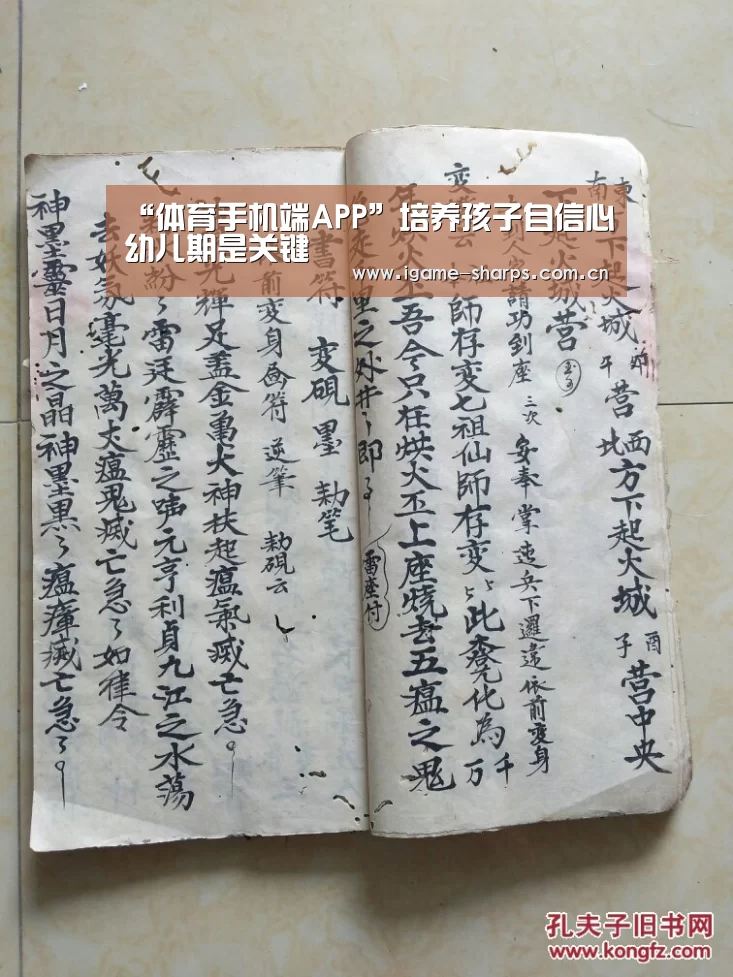 “体育手机端APP”培养孩子自信心
幼儿期是关键
www.igame-sharps.com.cn
東
南
下起火城
午
营
西
北
方下起火城
酉
子
营中央
下起火城营
請功到座
三次
安奉掌
兵下邏遠依前变身
变
師存变七祖仙師存变
此
化為
千
万
吾今只在烘火
上座燒去五瘟之鬼
里之处井
即
雷座付
書符
变硯
墨
勅笔
前变身画符
逆筆
勅硯云
光輝足盖金亀火神扶起瘟氣滅亡急
紛
雷廷霹靂之声元亨利貞九江之水蕩
去妖氛毫光萬丈瘟鬼滅亡急
如律令
神墨靈日月之晶神墨黑
瘟瘴滅亡急
孔夫子旧书网
www.kongfz.com